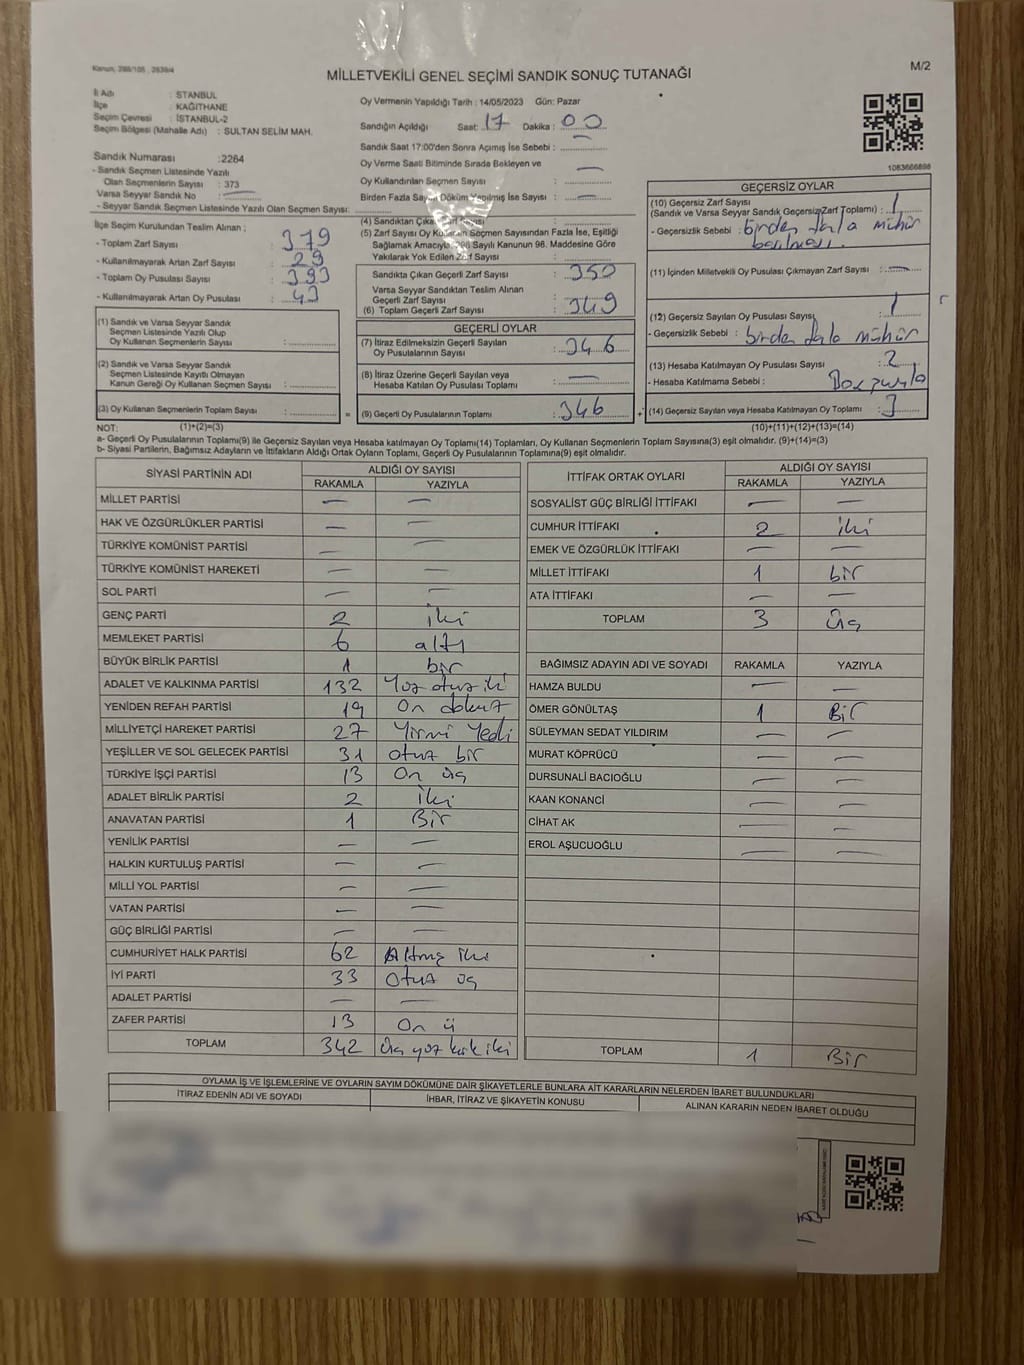 Kanun, 298/105 , 2839/4
M/2
MİLLETVEKİLİ GENEL SEÇİMİ SANDIK SONUÇ TUTANAĞI
İl Adı : STANBUL
İlçe : KAĞITHANE
Seçim Çevresi : İSTANBUL-2
Seçim Bölgesi (Mahalle Adı) : SULTAN SELİM MAH.
Sandık Numarası :2264
- Sandık Seçmen Listesinde Yazılı
Olan Seçmenlerin Sayısı : 373
Varsa Seyyar Sandık No : —
- Seyyar Sandık Seçmen Listesinde Yazılı Olan Seçmen Sayısı:
İlçe Seçim Kurulundan Teslim Alınan ;
- Toplam Zarf Sayısı : 379
- Kullanılmayarak Artan Zarf Sayısı : 29
- Toplam Oy Pusulası Sayısı : 393
- Kullanılmayarak Artan Oy Pusulası : 43
(1) Sandık ve Varsa Seyyar Sandık
Seçmen Listesinde Yazılı Olup
Oy Kullanan Seçmenlerin Sayısı :
(2) Sandık ve Varsa Seyyar Sandık
Seçmen Listesinde Kayıtlı Olmayan
Kanun Gereği Oy Kullanan Seçmen Sayısı :
(3) Oy Kullanan Seçmenlerin Toplam Sayısı :
(1)+(2)=(3)
Oy Vermenin Yapıldığı Tarih : 14/05/2023 Gün: Pazar
Sandığın Açıldığı Saat: 17 Dakika : 00
Sandık Saat 17:00'den Sonra Açımış İse Sebebi : —
Oy Verme Saati Bitiminde Sırada Bekleyen ve
Oy Kullandırılan Seçmen Sayısı : —
Birden Fazla Sayım Döküm Yapılmış İse Sayısı : —
(4) Sandıktan Çıkan Zarf Sayısı :
(5) Zarf Sayısı Oy Kullanan Seçmen Sayısından Fazla İse, Eşitliği
Sağlamak Amacıyla 298 Sayılı Kanunun 96. Maddesine Göre
Yakılarak Yok Edilen Zarf Sayısı :
Sandıkta Çıkan Geçerli Zarf Sayısı : 350
Varsa Seyyar Sandıktan Teslim Alınan
Geçerli Zarf Sayısı :
(6) Toplam Geçerli Zarf Sayısı : 349
GEÇERLİ OYLAR
(7) İtiraz Edilmeksizin Geçerli Sayılan
Oy Pusulalarının Sayısı : 346
(8) İtiraz Üzerine Geçerli Sayılan veya
Hesaba Katılan Oy Pusulası Toplamı : —
= (9) Geçerli Oy Pusulalarının Toplamı : 346 +
1083666898
GEÇERSİZ OYLAR
(10) Geçersiz Zarf Sayısı
(Sandık ve Varsa Seyyar Sandık Geçersiz Zarf Toplamı) : 1
- Geçersizlik Sebebi : birden fazla mühür
basılması.
(11) İçinden Milletvekili Oy Pusulası Çıkmayan Zarf Sayısı : —
(12) Geçersiz Sayılan Oy Pusulası Sayısı : 1
- Geçersizlik Sebebi : birden fazla mühür
(13) Hesaba Katılmayan Oy Pusulası Sayısı : 2
- Hesaba Katılmama Sebebi :
(14) Geçersiz Sayılan veya Hesaba Katılmayan Oy Toplamı : 3
(10)+(11)+(12)+(13)=(14)
NOT:
a- Geçerli Oy Pusulalarının Toplamı(9) ile Geçersiz Sayılan veya Hesaba katılmayan Oy Toplamı(14) Toplamları, Oy Kullanan Seçmenlerin Toplam Sayısına(3) eşit olmalıdır. (9)+(14)=(3)
b- Siyasi Partilerin, Bağımsız Adayların ve İttifakların Aldığı Ortak Oyların Toplamı, Geçerli Oy Pusulalarının Toplamına(9) eşit olmalıdır.
SİYASİ PARTİNİN ADI ALDIĞI OY SAYISI
RAKAMLA YAZIYLA
MİLLET PARTİSİ — —
HAK VE ÖZGÜRLÜKLER PARTİSİ — —
TÜRKİYE KOMÜNİST PARTİSİ — —
TÜRKİYE KOMÜNİST HAREKETİ — —
SOL PARTİ — —
GENÇ PARTİ 2 iki
MEMLEKET PARTİSİ 6 altı
BÜYÜK BİRLİK PARTİSİ 1 bir
ADALET VE KALKINMA PARTİSİ 132 Yüz otuz iki
YENİDEN REFAH PARTİSİ 19 On dokuz
MİLLİYETÇİ HAREKET PARTİSİ 27 Yirmi Yedi
YEŞİLLER VE SOL GELECEK PARTİSİ 31 otuz bir
TÜRKİYE İŞÇİ PARTİSİ 13 On üç
ADALET BİRLİK PARTİSİ 2 İki
ANAVATAN PARTİSİ 1 Bir
YENİLİK PARTİSİ — —
HALKIN KURTULUŞ PARTİSİ — —
MİLLİ YOL PARTİSİ — —
VATAN PARTİSİ — —
GÜÇ BİRLİĞİ PARTİSİ — —
CUMHURİYET HALK PARTİSİ 62 Altmış iki
İYİ PARTİ 33 Otuz üç
ADALET PARTİSİ — —
ZAFER PARTİSİ 13 On ü
TOPLAM 342 Üç yüz kırk iki
İTTİFAK ORTAK OYLARI ALDIĞI OY SAYISI
RAKAMLA YAZIYLA
SOSYALİST GÜÇ BİRLİĞİ İTTİFAKI — —
CUMHUR İTTİFAKI 2 iki
EMEK VE ÖZGÜRLÜK İTTİFAKI — —
MİLLET İTTİFAKI 1 bir
ATA İTTİFAKI — —
TOPLAM 3 Üç
BAĞIMSIZ ADAYIN ADI VE SOYADI RAKAMLA YAZIYLA
HAMZA BULDU — —
ÖMER GÖNÜLTAŞ 1 Bir
SÜLEYMAN SEDAT YILDIRIM — —
MURAT KÖPRÜCÜ — —
DURSUNALİ BACIOĞLU — —
KAAN KONANCİ — —
CİHAT AK — —
EROL AŞUCUOĞLU — —
TOPLAM 1 Bir
OYLAMA İŞ VE İŞLEMLERİNE VE OYLARIN SAYIM DÖKÜMÜNE DAİR ŞİKAYETLERLE BUNLARA AİT KARARLARIN NELERDEN İBARET BULUNDUKLARI
İTİRAZ EDENİN ADI VE SOYADI İHBAR, İTİRAZ VE ŞİKAYETİN KONUSU ALINAN KARARIN NEDEN İBARET OLDUĞU